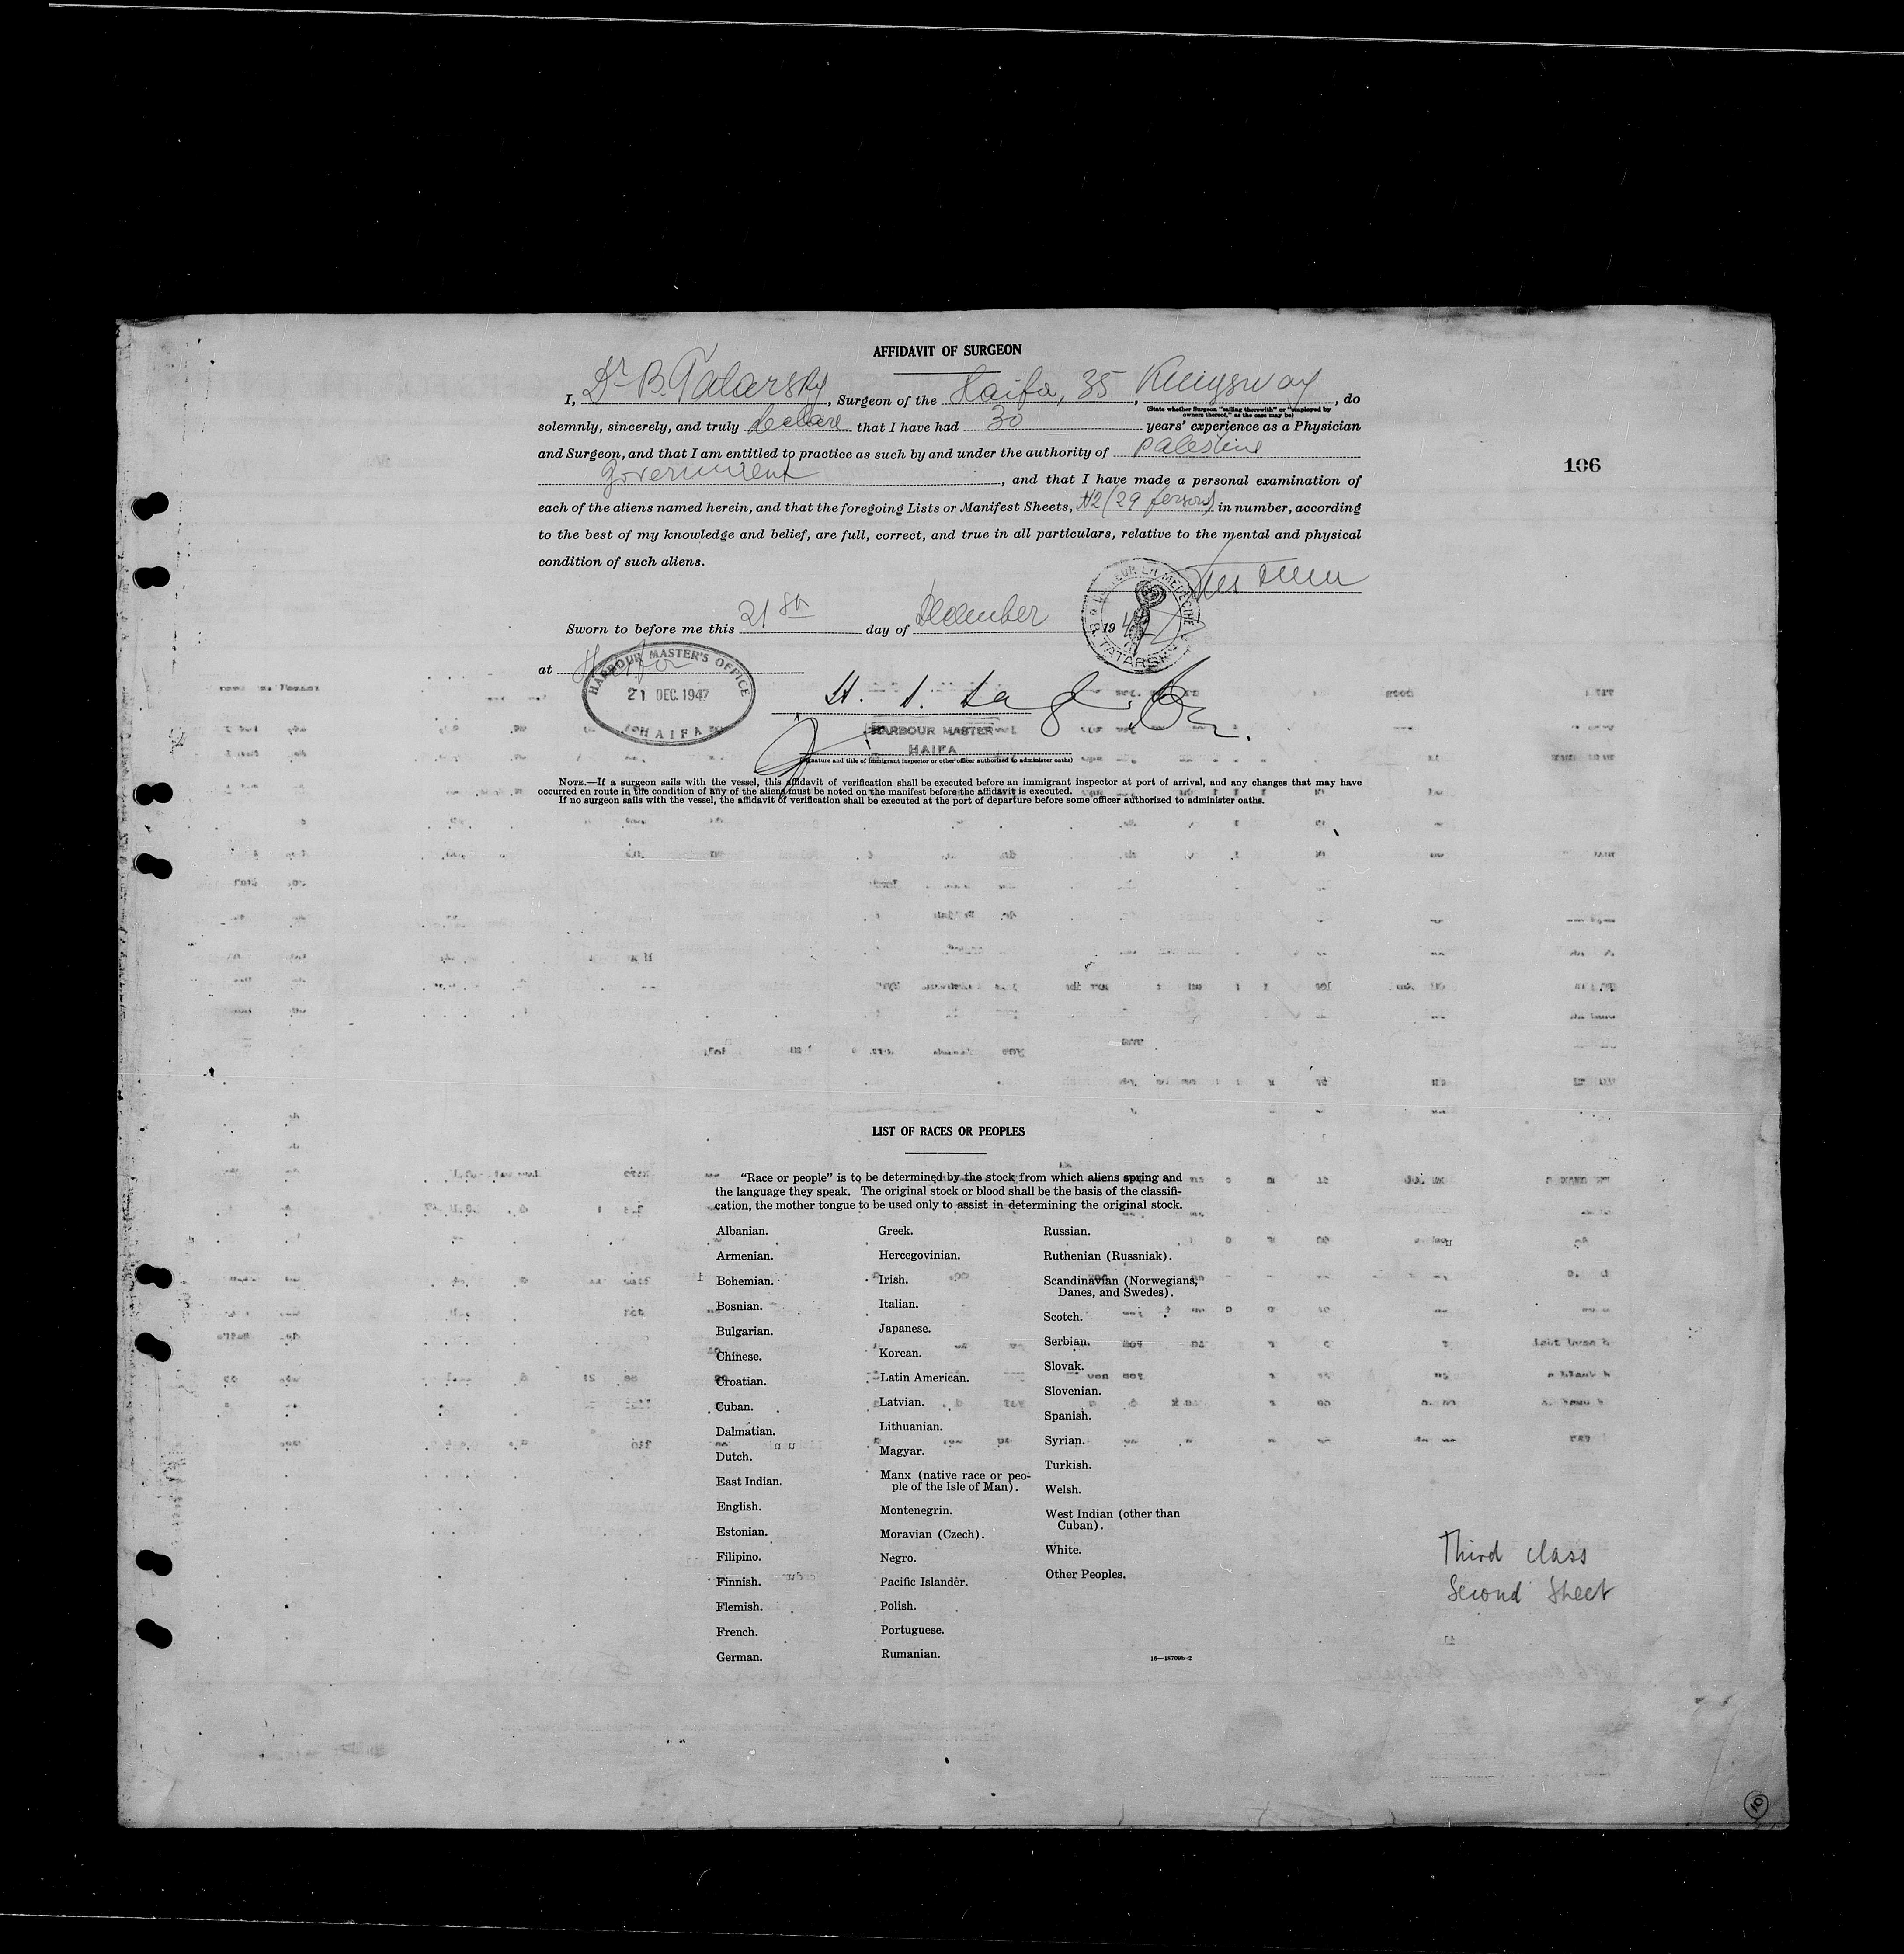 AFFIDAVIT OF SURGEON
I, Dr B. Tatarsky, Surgeon of the Haifa, 35, Kingsway, do
(State whether Surgeon "sailing therewith" or "employed by
owners thereof," as the case may be)
solemnly, sincerely, and truly declare that I have had 30 years' experience as a Physician
and Surgeon, and that I am entitled to practice as such by and under the authority of Palestine
106
Government, and that I have made a personal examination of
each of the aliens named herein, and that the foregoing Lists or Manifest Sheets, #2 (29 persons) in number, according
to the best of my knowledge and belief, are full, correct, and true in all particulars, relative to the mental and physical
condition of such aliens.
Sworn to before me this 21st day of December 1947
DOCTEUR EN MEDECINE
B. TATARSKY
at Haifa
HARBOUR MASTER'S OFFICE
21 DEC. 1947
HAIFA
HARBOUR MASTER
HAIFA
(Signature and title of immigrant inspector or other officer authorized to administer oaths)
NOTE.—If a surgeon sails with the vessel, this affidavit of verification shall be executed before an immigrant inspector at port of arrival, and any changes that may have
occurred en route in the condition of any of the aliens must be noted on the manifest before the affidavit is executed.
If no surgeon sails with the vessel, the affidavit of verification shall be executed at the port of departure before some officer authorized to administer oaths.
LIST OF RACES OR PEOPLES
"Race or people" is to be determined by the stock from which aliens spring and
the language they speak. The original stock or blood shall be the basis of the classifi-
cation, the mother tongue to be used only to assist in determining the original stock.
Albanian.
Armenian.
Bohemian.
Bosnian.
Bulgarian.
Chinese.
Croatian.
Cuban.
Dalmatian.
Dutch.
East Indian.
English.
Estonian.
Filipino.
Finnish.
Flemish.
French.
German.
Greek.
Hercegovinian.
Irish.
Italian.
Japanese.
Korean.
Latin American.
Latvian.
Lithuanian.
Magyar.
Manx (native race or peo-
ple of the Isle of Man).
Montenegrin.
Moravian (Czech).
Negro.
Pacific Islander.
Polish.
Portuguese.
Rumanian.
Russian.
Ruthenian (Russniak).
Scandinavian (Norwegians,
Danes, and Swedes).
Scotch.
Serbian.
Slovak.
Slovenian.
Spanish.
Syrian.
Turkish.
Welsh.
West Indian (other than
Cuban).
White.
Other Peoples.
16—18709b-2
Third class
Second Sheet
10